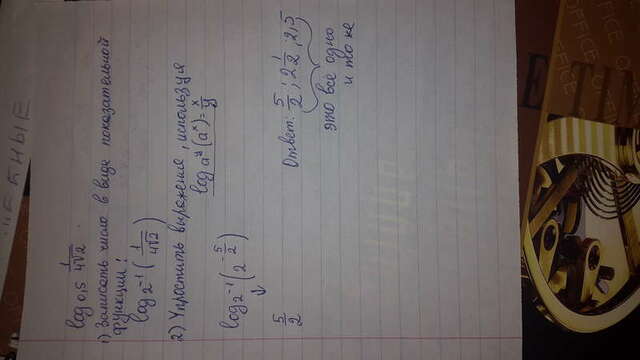 ЕБНЫЕ
log 0,5 1/(4√2)
1) Записать число в виде показательной
функции:
log 2⁻¹ (1/(4√2))
2) Упростить выражения, используя
log aʸ (aˣ) = x/y
log 2⁻¹ (2^(-5/2))
↓
5/2
Ответ: 5/2; 2 1/2; 2,5
это всё одно
и то же
OFFICE